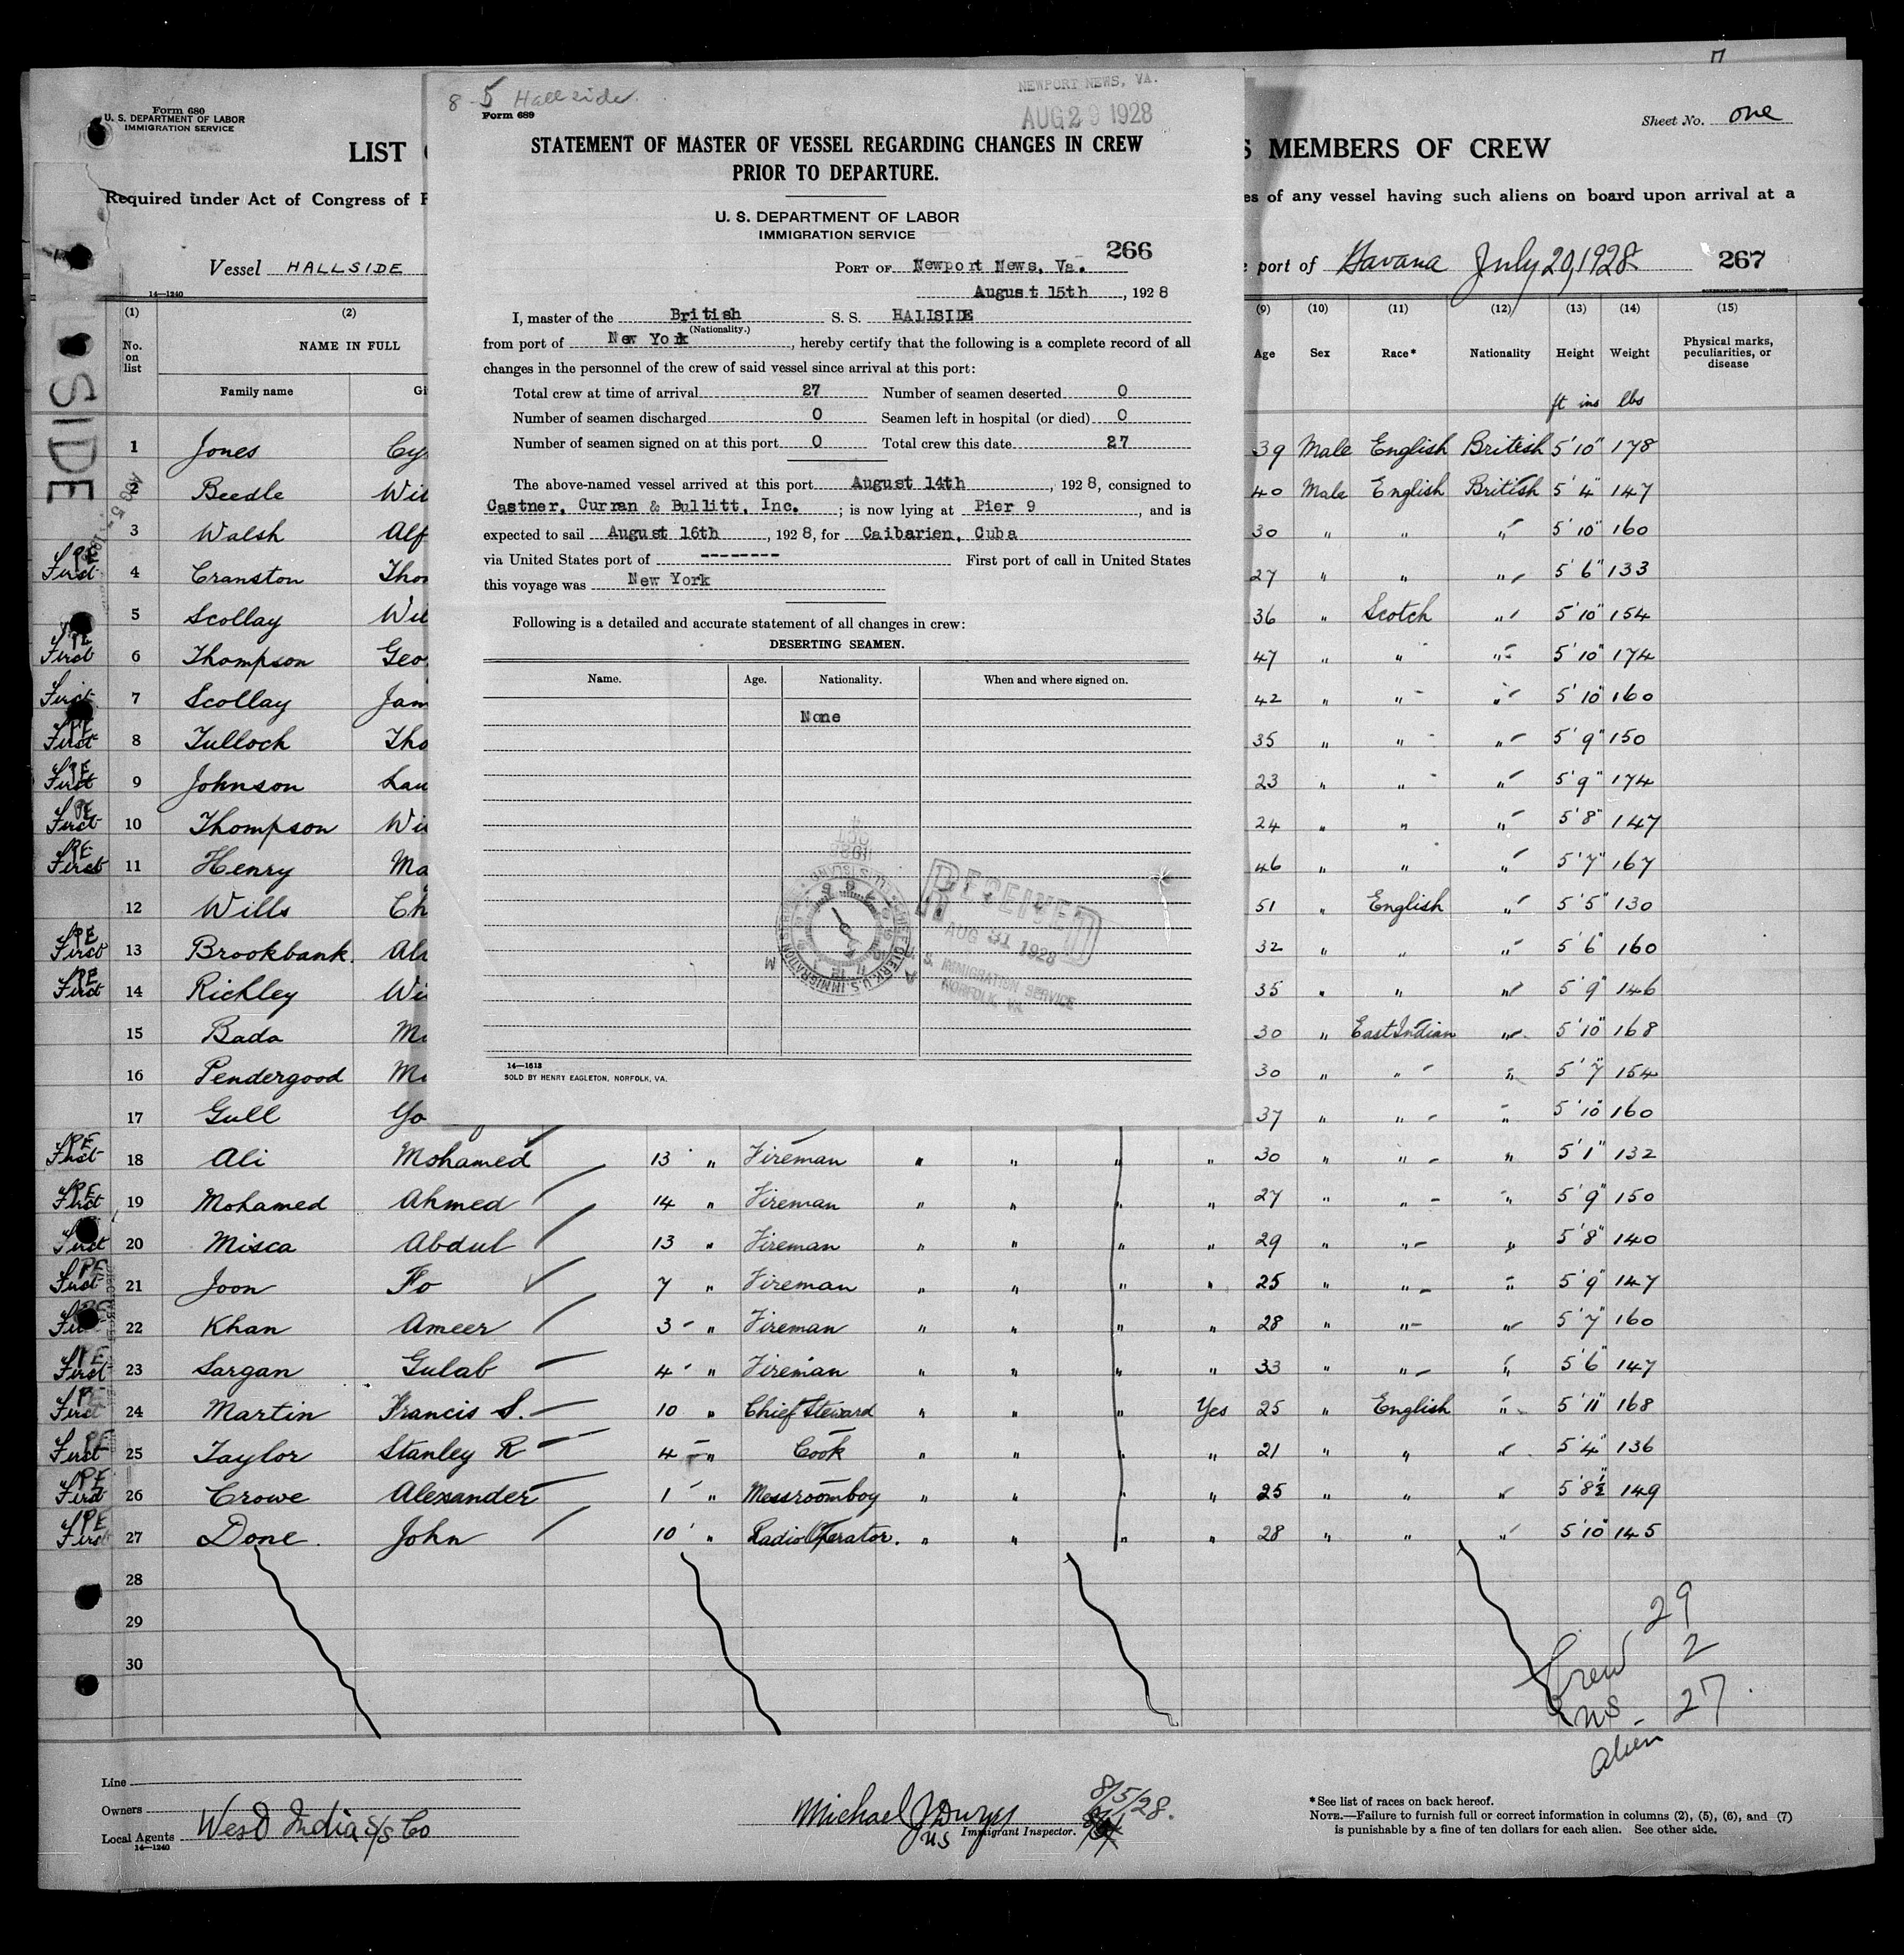 Form 680
U. S. DEPARTMENT OF LABOR
IMMIGRATION SERVICE
Sheet No. one
LIST
S MEMBERS OF CREW
Required under Act of Congress of
es of any vessel having such aliens on board upon arrival at a
Vessel HALLSIDE
port of Havana July 20, 1928
267
14—1240
SIDE
8-5 Hallside.
NEWPORT NEWS, VA.
AUG 29 1928
Form 689
STATEMENT OF MASTER OF VESSEL REGARDING CHANGES IN CREW
PRIOR TO DEPARTURE.
U. S. DEPARTMENT OF LABOR
IMMIGRATION SERVICE
266
PORT OF Newport News, Va.
August 15th, 1928
I, master of the British S. S. HALLSIDE
(Nationality.)
from port of New York, hereby certify that the following is a complete record of all
changes in the personnel of the crew of said vessel since arrival at this port:
Total crew at time of arrival 27 Number of seamen deserted 0
Number of seamen discharged 0 Seamen left in hospital (or died) 0
Number of seamen signed on at this port 0 Total crew this date 27
The above-named vessel arrived at this port August 14th, 1928, consigned to
Castner, Curran & Bullitt, Inc. ; is now lying at Pier 9, and is
expected to sail August 16th, 1928, for Caibarien, Cuba
via United States port of -------- First port of call in United States
this voyage was New York
Following is a detailed and accurate statement of all changes in crew:
DESERTING SEAMEN.
Name. Age. Nationality. When and where signed on.
None
RECEIVED
AUG 31 1928
U. S. IMMIGRATION SERVICE
NORFOLK, VA.
14—1613
SOLD BY HENRY EAGLETON, NORFOLK, VA.
(1) (2) (9) (10) (11) (12) (13) (14) (15)
No. on list NAME IN FULL Age Sex Race* Nationality Height Weight Physical marks, peculiarities, or disease
Family name Gi
ft ins lbs
1 Jones Cy 39 Male English British 5'10" 178
2 Beedle Wil 40 Male English British 5'4" 147
3 Walsh Alf 30 " " " 5'10" 160
First PE 4 Cranston Tho 27 " " " 5'6" 133
5 Scollay Wil 36 " Scotch " 5'10" 154
First PE 6 Thompson Geo 47 " " " 5'10" 174
First 7 Scollay Jam 42 " " " 5'10" 160
First PE 8 Tulloch Tho 35 " " " 5'9" 150
First PE 9 Johnson Lau 23 " " " 5'9" 174
First PE 10 Thompson Wi 24 " " " 5'8" 147
First PE 11 Henry Ma 46 " " " 5'7" 167
12 Wills Ch 51 " English " 5'5" 130
First PE 13 Brookbank. Al 32 " " " 5'6" 160
First PE 14 Richley Wi 35 " " " 5'9" 146
15 Bada M 30 " East Indian " 5'10" 168
16 Pendergood M 30 " " " 5'7" 154
17 Gull Yo 37 " " " 5'10" 160
First PE 18 Ali Mohamed 13 " Fireman " " " " 30 " " " 5'1" 132
First PE 19 Mohamed Ahmed 14 " Fireman " " " " 27 " " " 5'9" 150
First 20 Misca Abdul 13 " Fireman " " " " 29 " " " 5'8" 140
First PE 21 Joon Fo 7 " Fireman " " " " 25 " " " 5'9" 147
First 22 Khan Ameer 3 " Fireman " " " " 28 " " " 5'7" 160
First PE 23 Sargan Gulab 4 " Fireman " " " " 33 " " " 5'6" 147
First PE 24 Martin Francis S. 10 " Chief Steward " " " Yes 25 " English " 5'11" 168
First PE 25 Taylor Stanley R 4 " Cook " " " " 21 " " " 5'4" 136
First PE 26 Crowe Alexander 1 " Messroomboy " " " " 25 " " " 5'8½" 149
First PE 27 Done. John 10 " Radio Operator. " " " " 28 " " " 5'10" 145
28
29
30
Crew 29
US 2
Alien 27
Line
Owners
Local Agents West India S/S Co
14—1240
Michael J
US Immigrant Inspector.
8/5/28.
*See list of races on back hereof.
NOTE.—Failure to furnish full or correct information in columns (2), (5), (6), and (7)
is punishable by a fine of ten dollars for each alien. See other side.